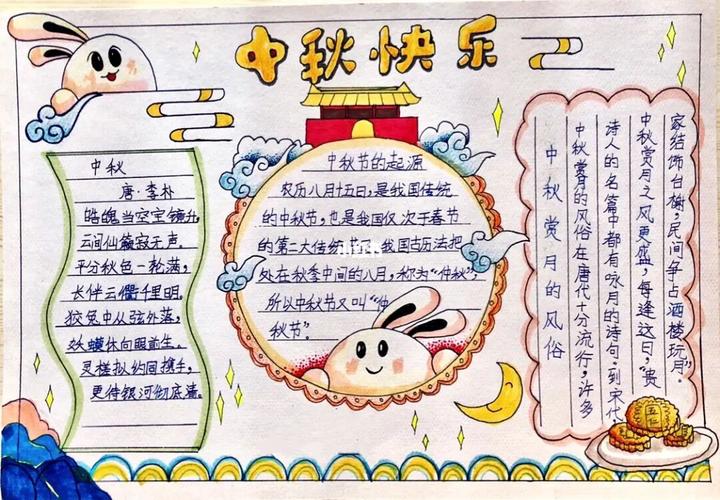 中秋快乐
中秋
唐·李朴
皓魄当空宝镜升,
云间仙籁寂无声。
平分秋色一轮满,
长伴云衢千里明。
狡兔中从弦外落,
妖蟆休向眼前生。
灵槎拟约同携手,
更待银河彻底清。
中秋节的起源
农历八月十五日,是我国传统
的中秋节,也是我国仅次于春节
的第二大传统节日。我国古历法把
处在秋季中间的八月,称为“仲秋”,
所以中秋节又叫“仲
秋节”。
中秋赏月的风俗
中秋赏月的风俗在唐代十分流行,许多
诗人的名篇中都有咏月的诗句;到宋代
中秋赏月之风更盛,每逢这日,“贵
家结饰台榭,民间争占酒楼玩月”.
五仁